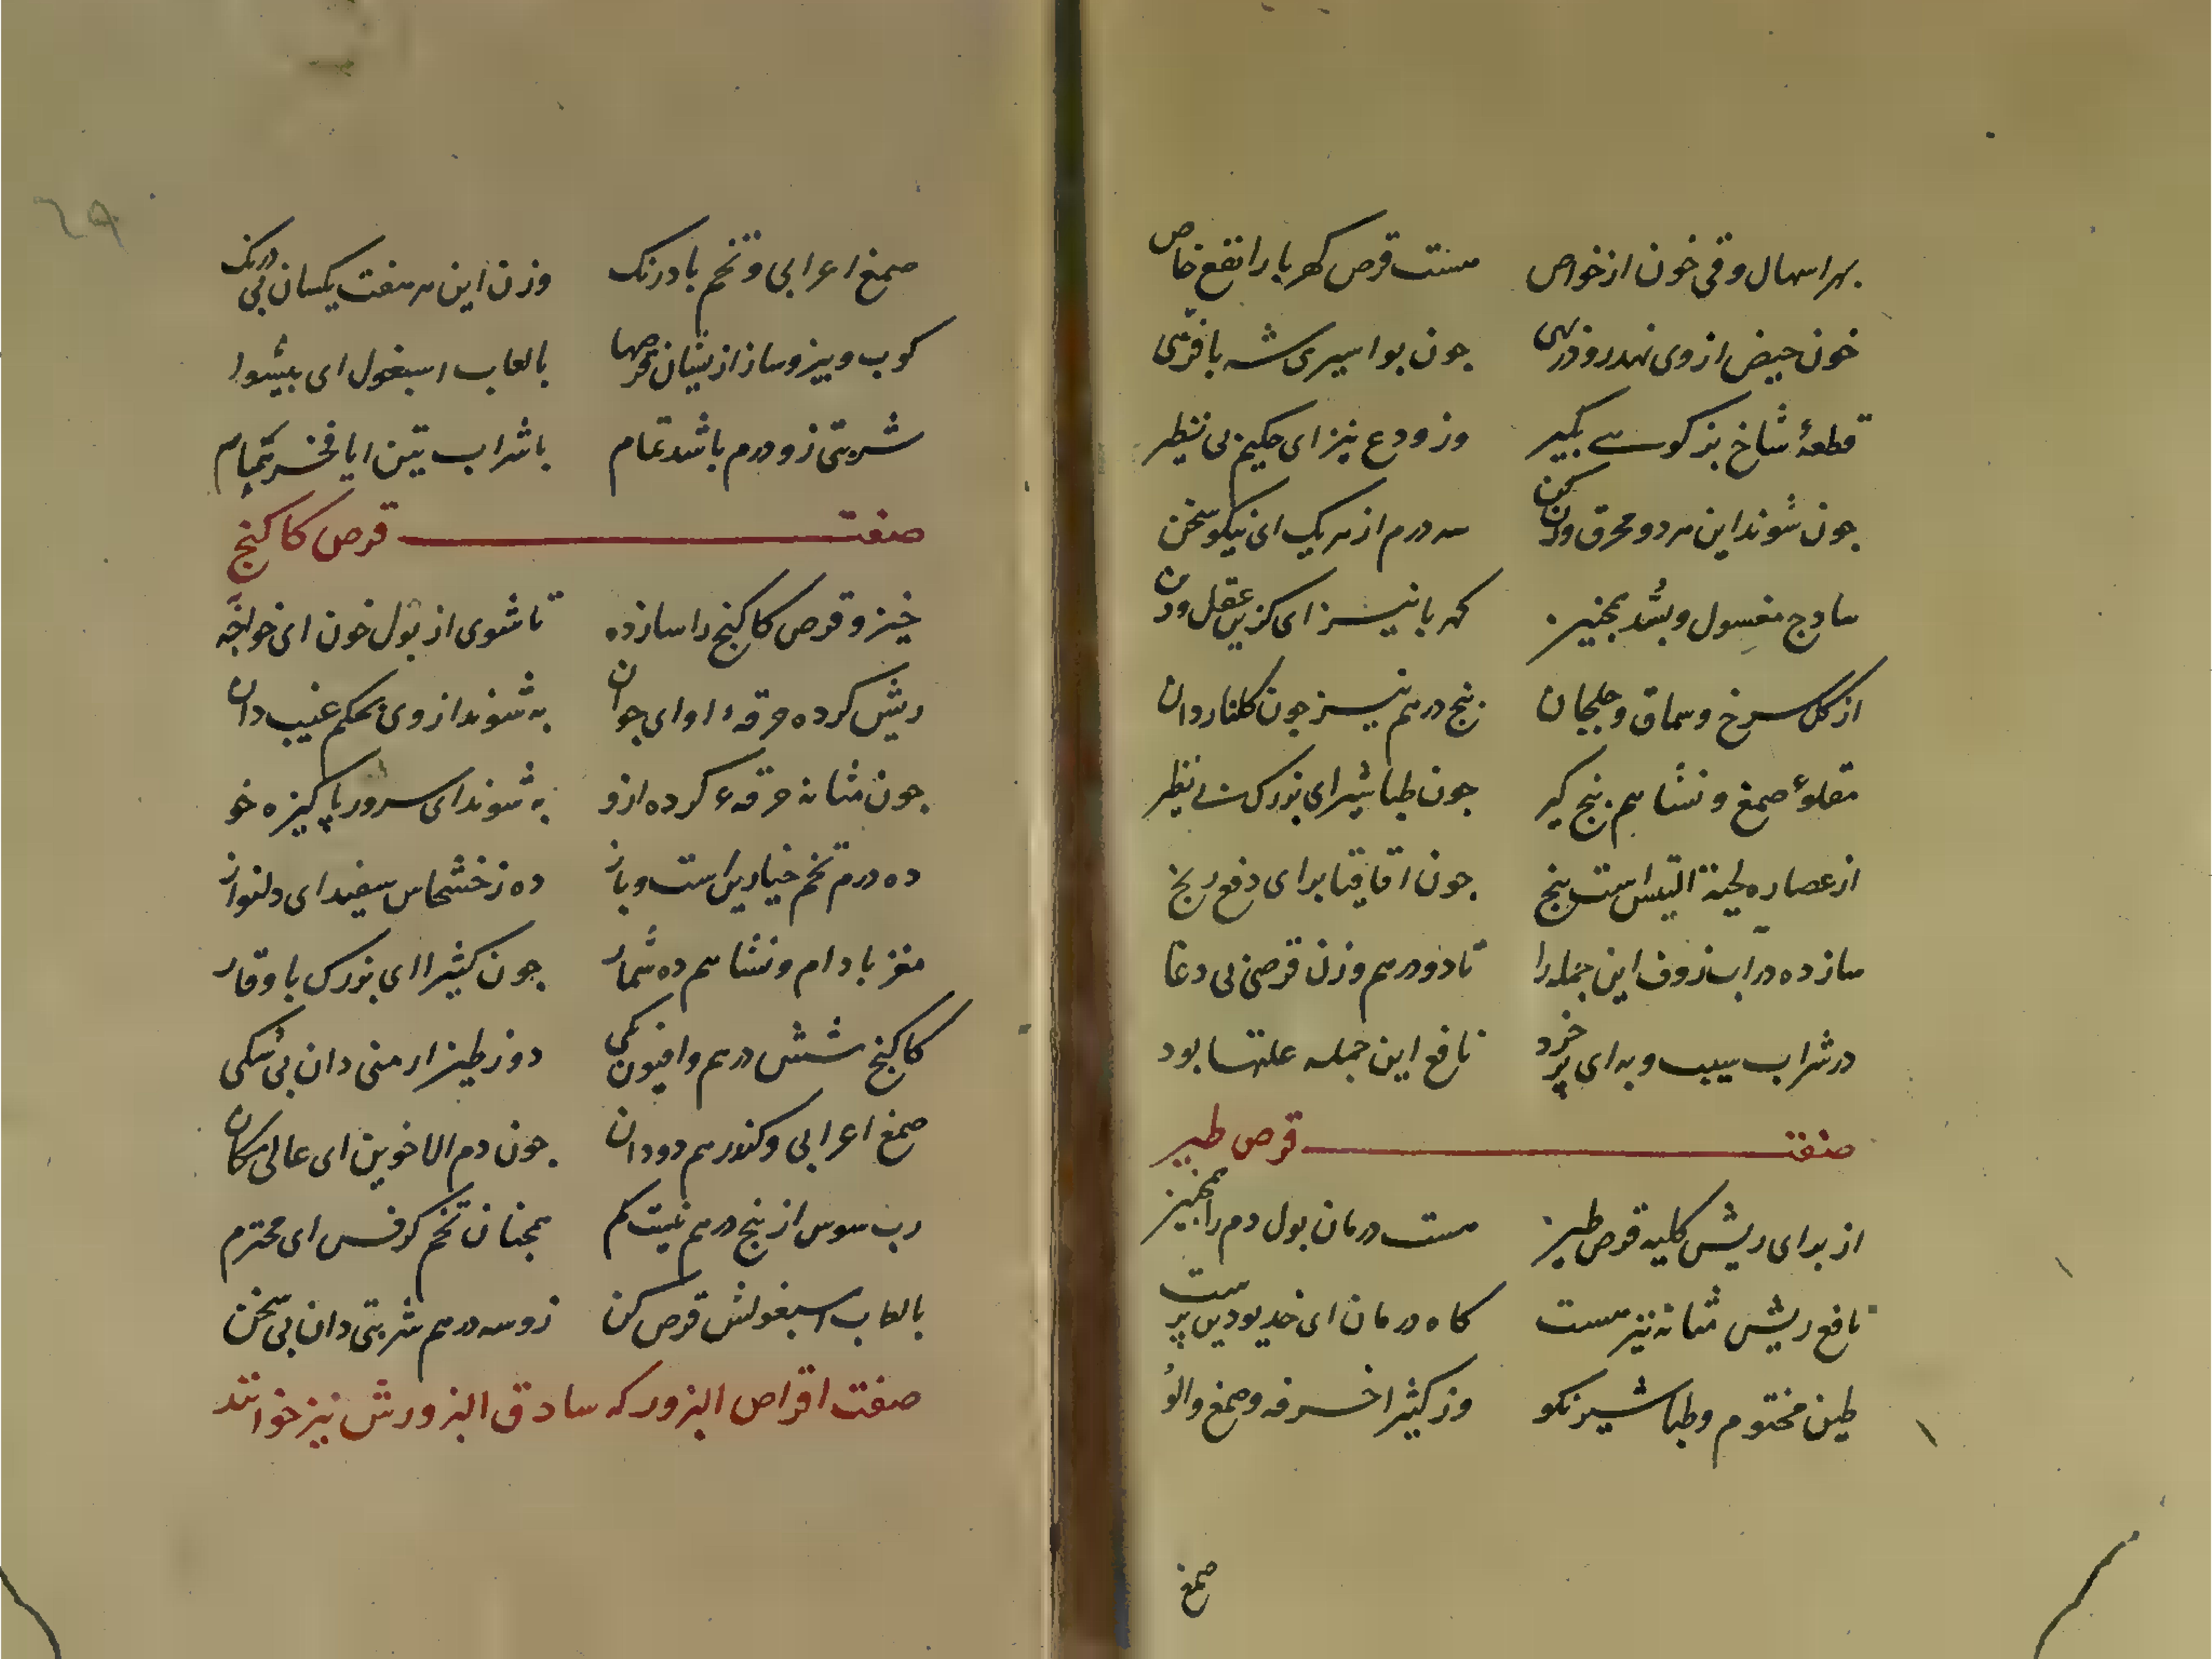 بهر اسهال و قی خون از خواص هست قرص کهربا را نفع خاص
خون حیض از وی نهد رو در بهی چون بواسیری شه بافرهی
قطعهٔ شاخ بز کوهی بگیر وز ودع نیز ای حکیم بی نظیر
چون شوند این هر دو محرق وزن کن سه درم از هر یک ای نیکو سخن
سادج مغسول و بسد همچنیز کهربا نیز ای گزین عقل ودان
از گل سرخ و سماق و جلجان پنج درهم نیز چون گلنار دان
مقلوءٔ صمغ و نشا هم پنج گیر چون طباشیر ای بزرک بی نظیر
از عصاره لحیة التیس است پنج چون اقاقیا برای دفع رنج
ساز ده در آب زوف این جمله را تا دو درهم وزن قرصی بی دغا
در شراب سیب و به ای پر خرد نافع این جمله علتها بود
صفت قرص طین
از برای ریش کلیه قرص طین هست درمان بول دم را همچنین
نافع ریش مثانه نیز هست گاه درمان ای خدیو دین پرست
طین مختوم و طباشیر نکو وز کثیرا خرفه و صمغ والو
صمغ
٦٩
صمغ اعرابی و تخم بادرنک وزن این هر هفت یکسان بی درنک
کوب و بیز و ساز از بنیان قرصها بالعاب اسبغول ای پیشوا
شربتی زو دو درم باشد تمام با شراب تین ایا فخر همام
صفت قرص کاکنج
خیز و قرص کاکنج را ساز ده تا شوی از بول خون ای خواجه به
ریش کرده حرقهٔ او ای جوان به شوند از وی بحکم غیب دان
چون مثانه حرقهٔ کرده ازو به شوند ای سرور پاکیزه خو
ده درم تخم خیارین است و باز ده ز خشخاش سفید ای دلنواز
مغز بادام و نشا هم ده شمار چون کثیرا ای بزرک با وقار
کاکنج شش درهم و افیون یکی دو ز طین ارمنی دان بی شکی
صمغ اعرابی و کندر هم دو دان چون دم الاخوین ای عالی مکان
رب سوس از پنج درهم نیست کم همچنان تخم کرفس ای محترم
بالعاب اسبغولش قرص کن زو سه درهم شربتی دان بی سخن
صفت اقراص البزور که سادق البزورش نیز خوانند